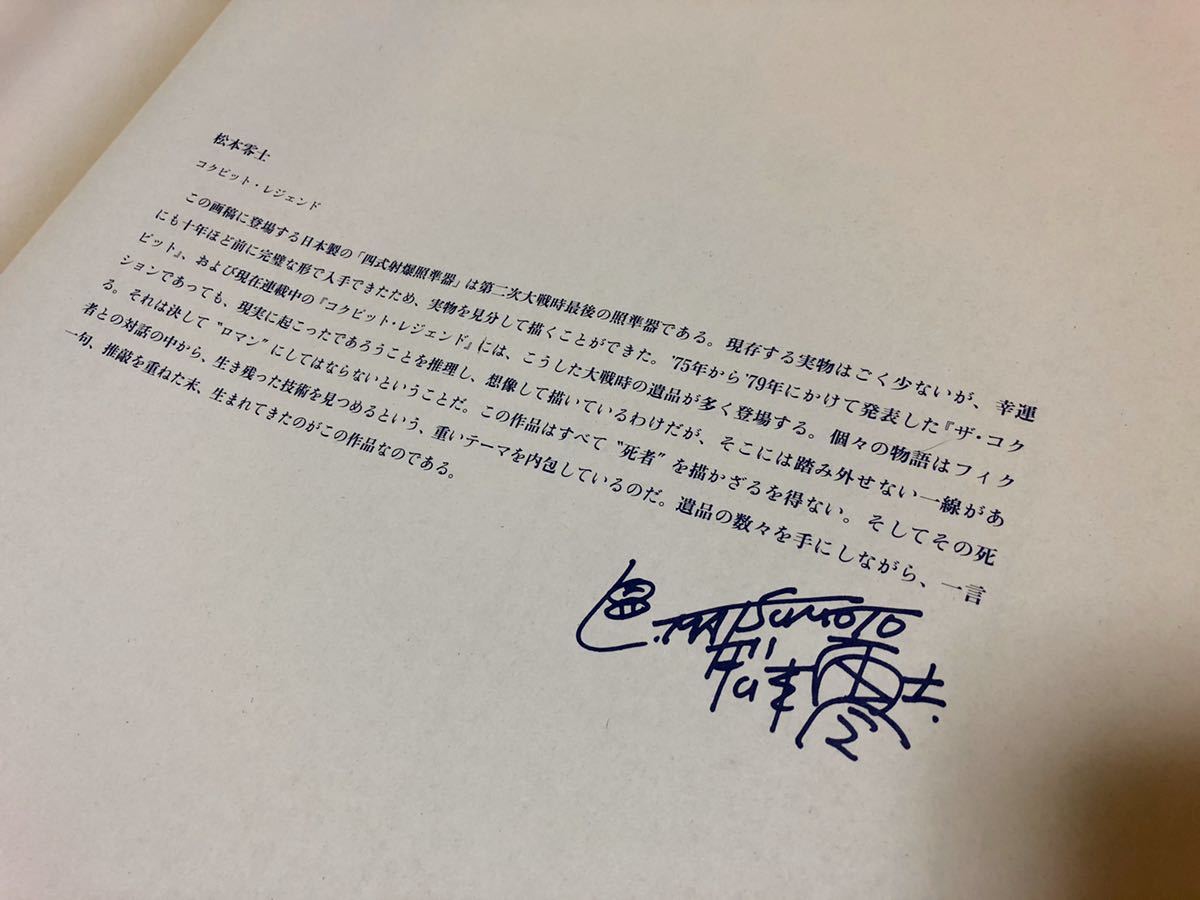 松本零士
コクピット・レジェンド
この画稿に登場する日本製の「四式射爆照準器」は第二次大戦時最後の照準器である。現存する実物はごく少ないが、幸運
にも十年ほど前に完璧な形で入手できたため、実物を見分して描くことができた。'75年から'79年にかけて発表した『ザ・コク
ピット』、および現在連載中の『コクピット・レジェンド』には、こうした大戦時の遺品が多く登場する。個々の物語はフィク
ションであっても、現実に起こったであろうことを推理し、想像して描いているわけだが、そこには踏み外せない一線があ
る。それは決して〝ロマン〟にしてはならないということだ。この作品はすべて〝死者〟を描かざるを得ない。そしてその死
者との対話の中から、生き残った技術を見つめるという、重いテーマを内包しているのだ。遺品の数々を手にしながら、一言
一句、推敲を重ねた末、生まれてきたのがこの作品なのである。
松本零士